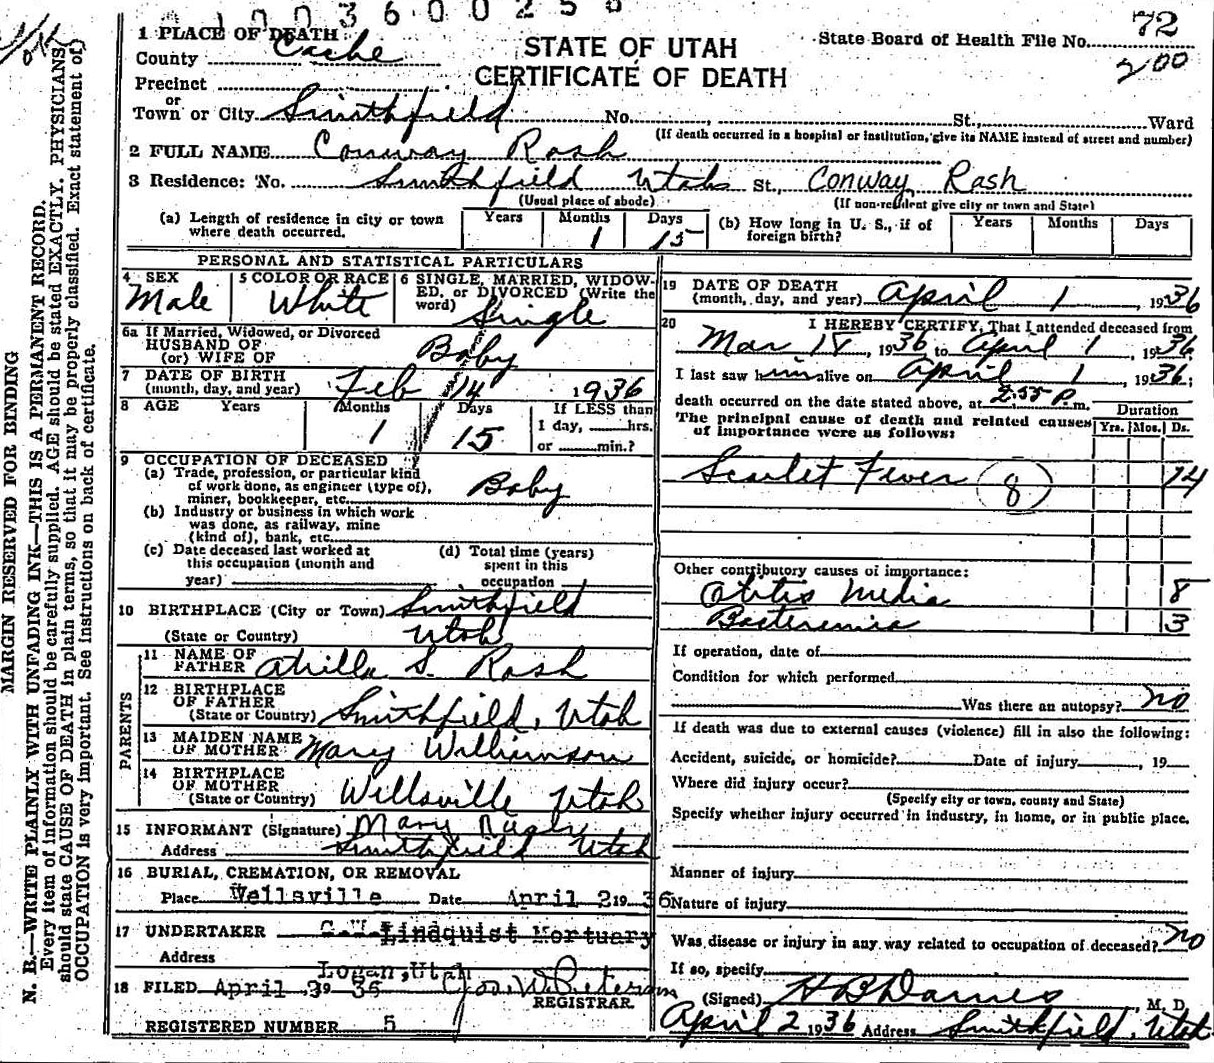 1003600258
1 PLACE OF DEATH
County Cache
STATE OF UTAH
CERTIFICATE OF DEATH
State Board of Health File No. 72
200
Precinct
or
Town or City Smithfield No. , St., Ward
(If death occurred in a hospital or institution, give its NAME instead of street and number)
2 FULL NAME Conway Rash
3 Residence: No. Smithfield Utah St., Conway Rash
(Usual place of abode) (If non-resident give city or town and State)
(a) Length of residence in city or town where death occurred. Years Months 1 Days 15
(b) How long in U. S., if of foreign birth? Years Months Days
PERSONAL AND STATISTICAL PARTICULARS
4 SEX Male
5 COLOR OR RACE White
6 SINGLE, MARRIED, WIDOWED, or DIVORCED (Write the word) Single
6a If Married, Widowed, or Divorced
HUSBAND OF
(or) WIFE OF Baby
7 DATE OF BIRTH
(month, day, and year) Feb 14 1936
8 AGE Years Months 1 Days 15 If LESS than 1 day, hrs. or min.?
9 OCCUPATION OF DECEASED
(a) Trade, profession, or particular kind
of work done, as engineer (type of),
miner, bookkeeper, etc. Baby
(b) Industry or business in which work
was done, as railway, mine
(kind of), bank, etc.
(c) Date deceased last worked at this occupation (month and year)
(d) Total time (years) spent in this occupation
10 BIRTHPLACE (City or Town) Smithfield
(State or Country) Utah
PARENTS
11 NAME OF FATHER Atilla S. Rash
12 BIRTHPLACE
OF FATHER
(State or Country) Smithfield, Utah
13 MAIDEN NAME
OF MOTHER Mary Williamson
14 BIRTHPLACE
OF MOTHER
(State or Country) Wellsville Utah
15 INFORMANT (Signature) Mary
Address Smithfield Utah
16 BURIAL, CREMATION, OR REMOVAL
Place Wellsville Date April 2 19 36
17 UNDERTAKER C.W. Lindquist Mortuary
Address
Logan, Utah
18 FILED April 3 19 36 Jos. W. Peterson
REGISTRAR
REGISTERED NUMBER 5
19 DATE OF DEATH
(month, day, and year) April 1, 1936
20 I HEREBY CERTIFY, That I attended deceased from
Mar 18, 1936 to April 1, 1936
I last saw him alive on April 1, 1936;
death occurred on the date stated above, at 2:55 P. m.
The principal cause of death and related causes
of importance were as follows:
Duration
Yrs. Mos. Ds.
Scarlet Fever 8 14
Other contributory causes of importance:
Otitis Media 8
Bacteremia 3
If operation, date of
Condition for which performed
Was there an autopsy? no
If death was due to external causes (violence) fill in also the following:
Accident, suicide, or homicide? Date of injury , 19
Where did injury occur?
(Specify city or town, county and State)
Specify whether injury occurred in industry, in home, or in public place.
Manner of injury
Nature of injury
Was disease or injury in any way related to occupation of deceased? no
If so, specify
(Signed) , M. D.
April 2 1936 Address Smithfield, Utah
MARGIN RESERVED FOR BINDING
N. B.—WRITE PLAINLY WITH UNFADING INK—THIS IS A PERMANENT RECORD.
Every item of information should be carefully supplied. AGE should be stated EXACTLY. PHYSICIANS
should state CAUSE OF DEATH in plain terms, so that it may be properly classified. Exact statement of
OCCUPATION is very important. See instructions on back of certificate.